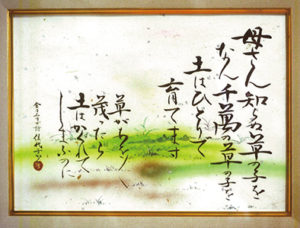 母さん知らぬ草の子を
なん千萬の草の子を
土はひとりで
育てます
草が
茂ったら
土はかくれて
しまふのに
金子みすゞ詩